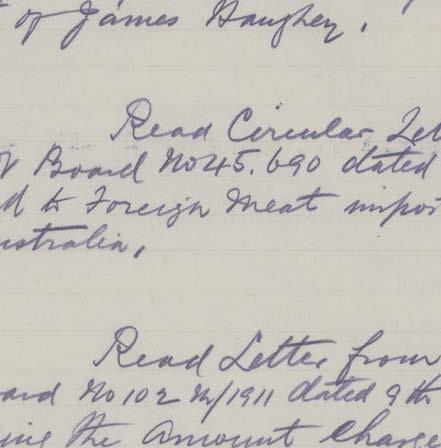 of James Haughey.
Read Circular Let
Board No 45.690 dated
d to Foreign Meat impor
ustralia,
Read Letter from
oard No 102 M/1911 dated 9th
ing the Amount Charge